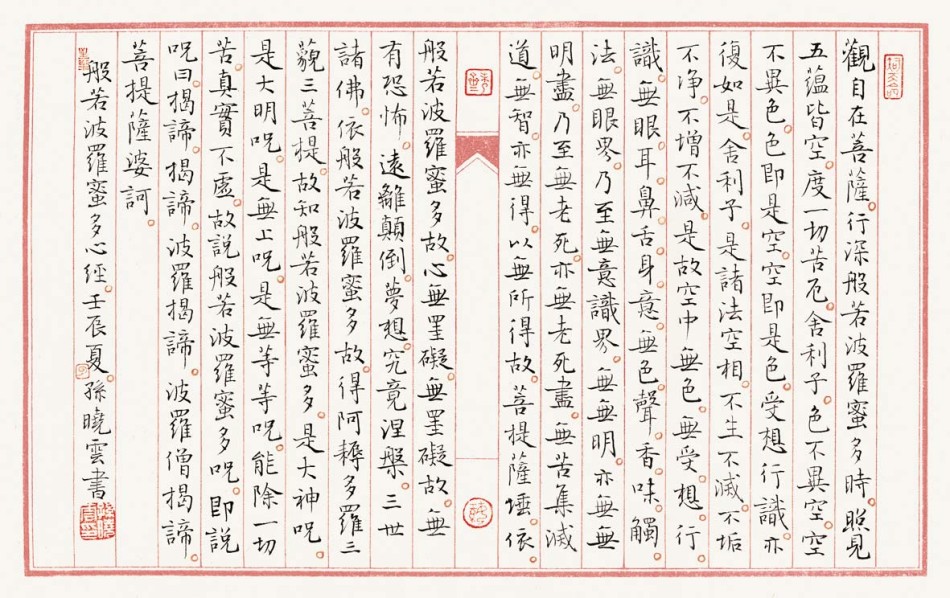 觀自在菩薩。行深般若波羅蜜多時。照見
五蘊皆空。度一切苦厄。舍利子。色不異空。空
不異色。色即是空。空即是色。受想行識。亦
復如是。舍利子。是諸法空相。不生不滅。不垢
不淨。不增不減。是故空中無色。無受。想。行
識。無眼耳鼻舌身意。無色聲香味觸
法。無眼界。乃至無意識界。無無明。亦無無
明盡。乃至無老死。亦無老死盡。無苦集滅
道。無智亦無得。以無所得故。菩提薩埵。依
般若波羅蜜多故。心無罣礙。無罣礙故。無
有恐怖。遠離顛倒。夢想。究竟涅槃。三世
諸佛。依般若波羅蜜多故。得阿耨多羅三
藐三菩提。故知般若波羅蜜多。是大神咒。
是大明咒。是無上咒。是無等等咒。能除一切
苦。真實不虛。故說般若波羅蜜多咒。即說
咒曰。揭諦。揭諦。波羅揭諦。波羅僧揭諦。
菩提薩婆訶。
般若波羅蜜多心經。壬辰夏。孫曉雲書